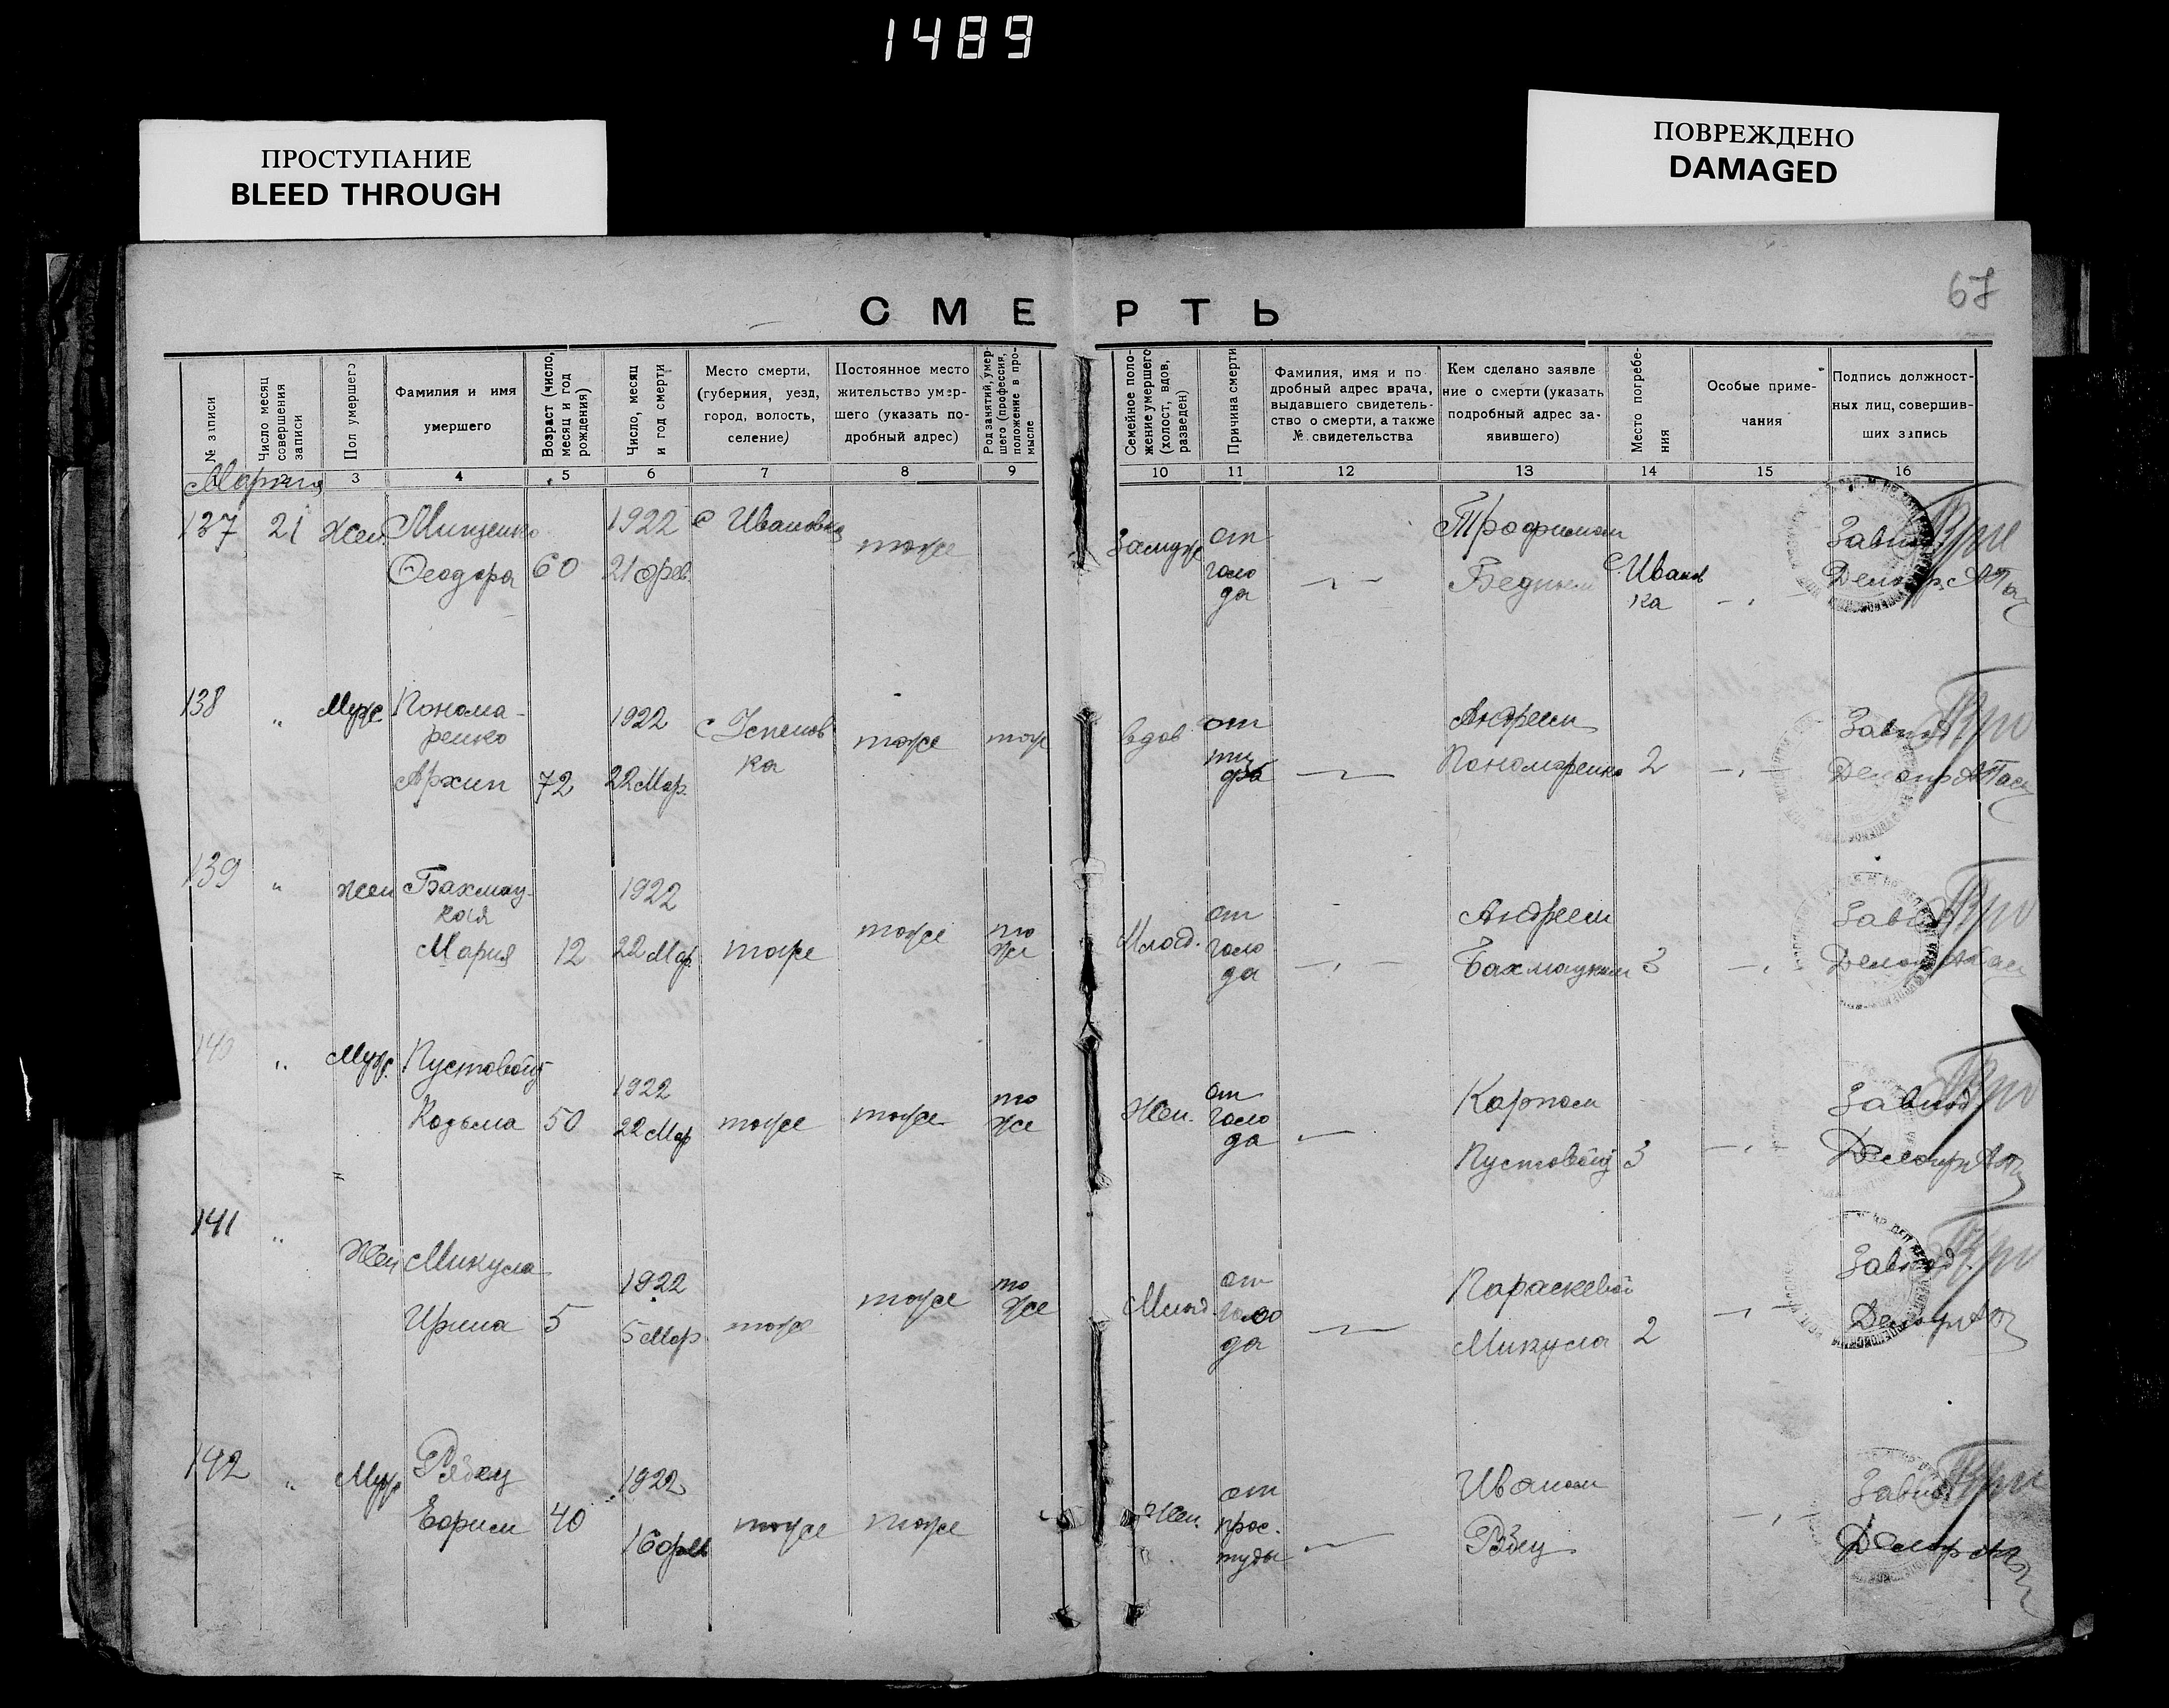 1489
ПРОСТУПАНИЕ
BLEED THROUGH
ПОВРЕЖДЕНО
DAMAGED
67
СМЕРТЬ
№ записи
Число месяц совершения записи
Пол умершего
Фамилия и имя умершего
Возраст (число, месяц и год рождения)
Число, месяц и год смерти
Место смерти, (губерния, уезд, город, волость, селение)
Постоянное место жительство умершего (указать подробный адрес)
Род занятий, умершего (профессия, положение в промысле
Семейное положение умершего (холост, вдов, разведен)
Причина смерти
Фамилия, имя и подробный адрес врача, выдавшего свидетельство о смерти, а также № свидетельства
Кем сделано заявление о смерти (указать подробный адрес заявившего)
Место погребения
Особые примечания
Подпись должностных лиц, совершивших запись
3 4 5 6 7 8 9 10 11 12 13 14 15 16
Марта
137 21 Жен. Мищенко 1922 с Ивановка тоже Замуж от Трофимом Завпод
Феодора 60 21 фев. голо Бедным с. Иванов Делопр.
да ка
138 " Муж Понома- 1922 с Успенов тоже тож вдов от Андреем Завпод
ренко ка
Архип 72 22 Мар. Пономаренко 2 Делопр
139 " жен Бахмац- 1922 от Андреем
кая
Мария 12 22 Мар. тоже тоже то же Млад. голо Бахмацким 3 Делопр
да
140 " Муж. Пустовой 1922 то от Карпом Завпод
Козьма 50 22 Мар тоже тоже же Жен. голо Пустовой 3 Делопр
да
141 " Жен Микула 1922 то от Параскевой Завпод.
Ирина 5 5 Мар тоже тоже же Млад. голо Микула 2 Делопр
да
142 " Муж Рябец 1922 от Иваном Завпод
Ефрем 40 тоже тоже Жен. прос- Рябец Делопр
туды